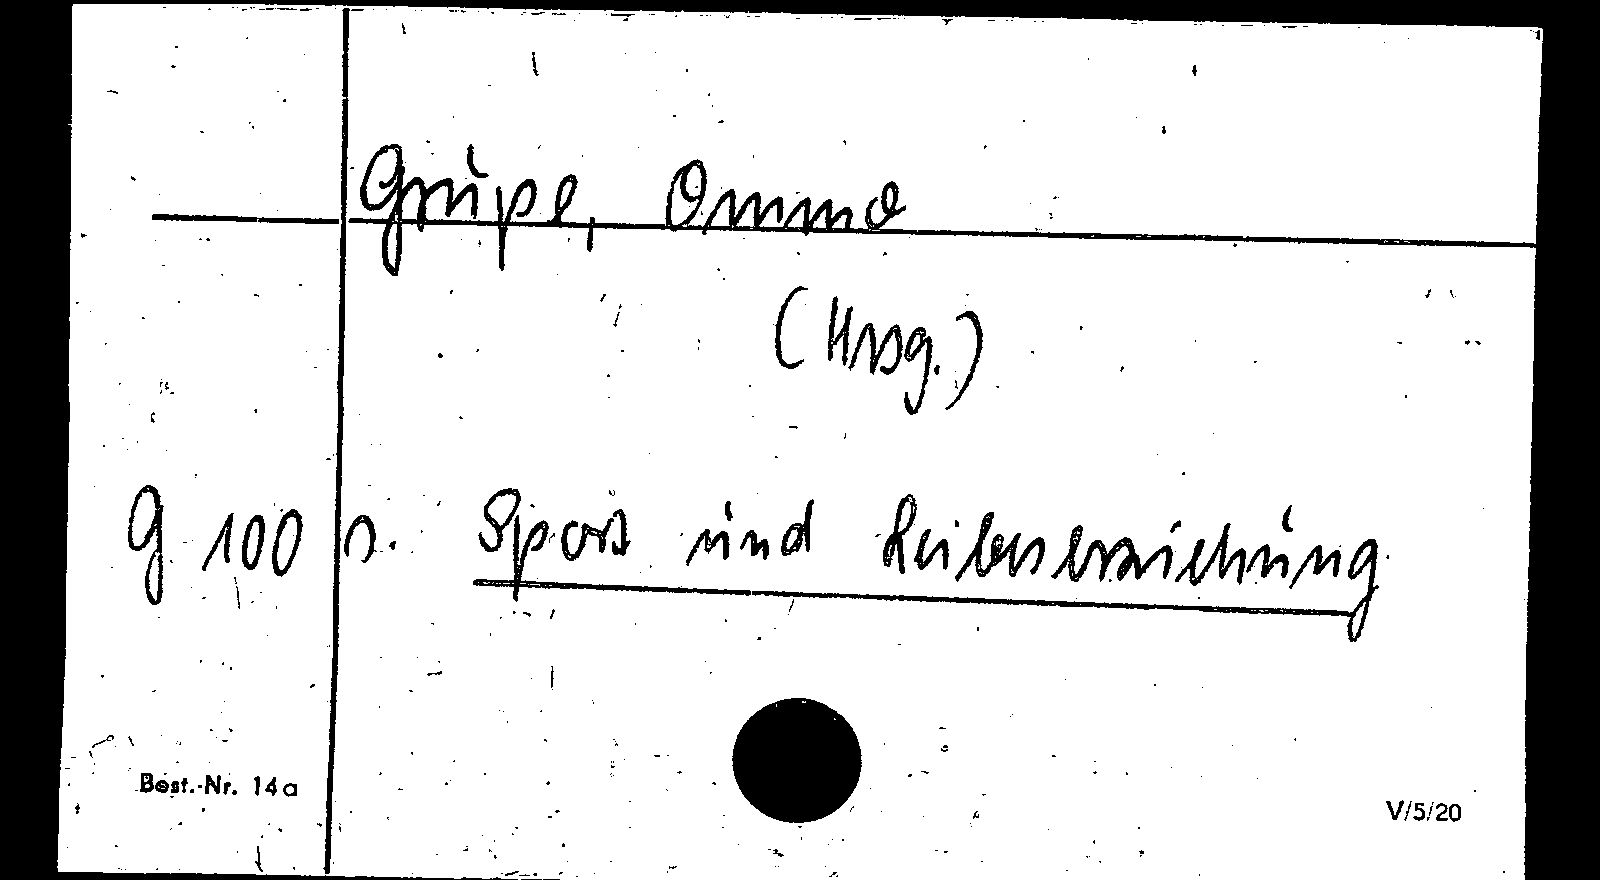 Grupe, Ommo
(Hrsg.)
G 100 s. Sport und Leibeserziehung
Best.-Nr. 14a
V/5/20